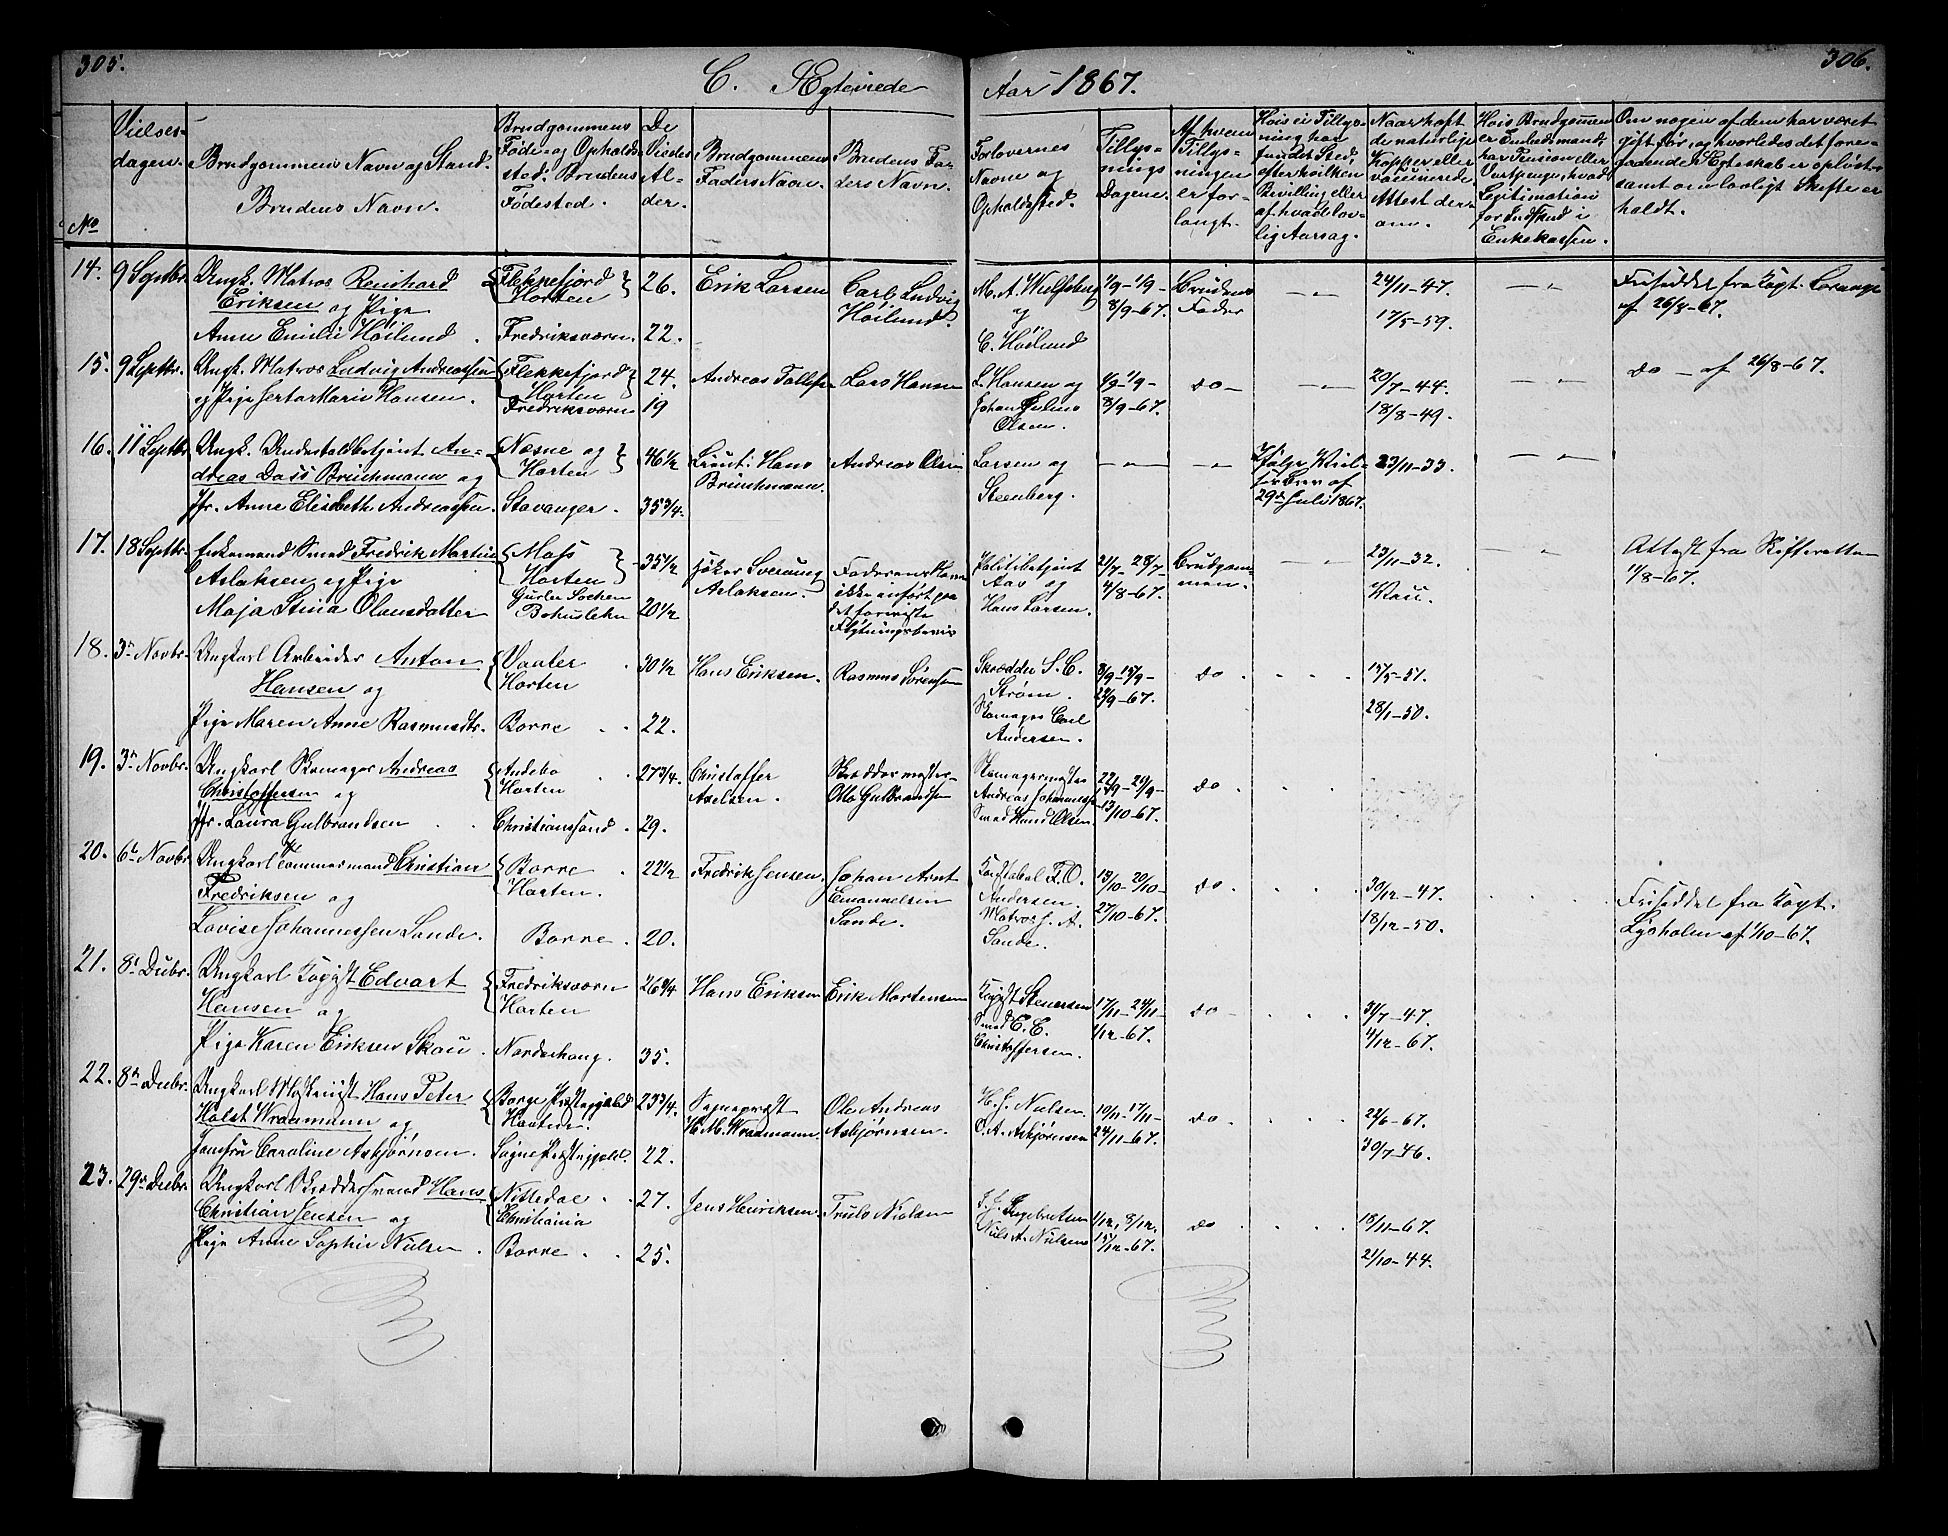 305.
C. Ægteviede
Aar 1867.
306.
No
Vielses-
dagen.
Brudgommens Navn og Stand.
Brudens Navn.
Brudgommens
Føde- og Opholds-
sted. Brudens
Fødested.
De
Viedes
Al-
der.
Brudgommens
Faders Navn.
Brudens Fa-
ders Navn.
Forlovernes
Navne og
Opholdsted.
Tillys-
nings
Dagene.
Af hvem
Tillys-
ningen
er for-
langt.
Hvis ei Tillys-
ning har
fundet Sted,
efter hvilken
Bevilling eller
af hvad lov-
lig Aarsag.
Naar haft
de naturlige
Kopper eller
vaccinerede.
Attest der-
om.
Hvis Brudgommen
er Embedsmand,
har Pension eller
Vartpenge, hvad
Legitimation
for Indskud i
Enkekassen.
Om nogen af dem har været
gift før, og hvorledes det fore-
gaaende Ægteskab er opløst
samt om lovligt Skifte er
holdt.
14. 9 Septbr. Ungk. Matros Reinhard Flekkefjord 26. Erik Larsen Carl Ludvig M. A. Wulfsberg 1/9 - 1/9 - Brudens 24/11-47. Friseddel fra Kapt.
Eriksen og Pige Horten Høilund. og 8/9-67. Fader af 26/8-67.
Anne Emilie Høilund. Fredriksværn. 22. C. Høilund 17/5-59.
15. 9 Septbr. Ungk. Matros Ludvig Andreassen Flekkefjord 24. Andreas Lars Hansen L. Hansen og 1/9 - 1/9 - do - 20/7-44. do - af 26/8-67.
og Pige Marie Hansen. Horten Johan Julius 8/9-67.
Fredriksværn 19 Olsen. 18/8-49.
16. 11 Septbr. Ungk. Underholdbetjent An- Næsne og 46 1/2 Lieut: Hans Andreas Olsen Larsen og Ifølge 23/11-33.
dreas Dass Brinchmann og Horten Brinchmann. Steenberg. brev af
Jfr. Anne Elisabeth Andreassen. Stavanger. 35 3/4. 29de Juli 1867.
17. 18 Septbr. Enkemand Smed Fredrik Martin Moss 35 1/2 Sverning Faderens Navn Politibetjent 21/7 - 28/7 - Brudgom- 23/11-32. Attest fra Skifteretten
Aslaksen og Pige Horten Aslaksen. ikke anført paa Aas og 4/8-67. men. 1/8-67.
Maja Stina Olausdatter Sochen Bohuslehn 20 1/2 det foreviste Hans Larsen.
Flytningsbevis
18. 3de Novbr. Ungkarl Arbeider Anton Vaaler 30 1/2 Hans Eriksen. Rasmus Sørensen Skrædder S. C. 8/9 - 15/9 - do 15/5-51.
Hansen og Horten Strøm. 22/9-67.
Pige Maren Anne Rasmusdtr. Borre 22. Skomager Carl 28/1-50.
Andersen.
19. 3de Novbr. Ungkarl Skomager Andreas Andebo 27 3/4. Christoffer Skræddermester Skomagermester 22/9 - 29/9 - do
Christoffersen og Horten Axelsen. Otto Gulbrandsen Andreas Johannessen 13/10-67.
Jfr. Laura Gulbrandsen Christianssand. 29. Smed Knud Olsen
20. 6te Novbr. Ungkarl Tømmermand Christian Borre 22 1/2 Fredrik Jensen. Johan Arnt Konstabel F. O. 13/10 - 20/10 - do. 30/12-47. Friseddel fra Kapt.
Fredriksen og Horten. Emanuelsen Andersen. 27/10-67. Lysholm af 1/10-67.
Lovise Johannessen Sande. Borre. 20. Sande. Matros J. A. 18/12-50.
Sande.
21. 8de Decbr. Ungkarl Edvart Fredriksværn 26 3/4 Hans Eriksen Erik Mortensen Stenersen 17/11 - 24/11 - do 31/7-47.
Hansen og Horten Smed C. E. 1/12-67.
Pige Karen Eriksen Skau. Norderhoug. 35. Christoffersen. 4/12-67.
22. 8de Decbr. Ungkarl Maskinist Hans Peter Borge Præstegjeld 23 3/4. Sogneprest Ole Andreas H. J. Nielsen 10/11 - 17/11 - do 22/6-67.
Holst Wraamann og Horten. H. M. Wraamann. Asbjørnsen. O. A. Asbjørnsen 24/11-67.
Jomfru Caroline Asbjørnsen. Præstegjeld. 22. 30/7-46.
23. 29de Decbr. Ungkarl Skræddersvend Hans Nittedal 27. Jens Henriksen. Truls Nielsen J. J. Ingebretsen 1/12, 8/12, do 18/11-67.
Christian Jensen og Christiania Niels A. Nielsen 15/12-67.
Pige Anne Sophie Nielsen. Borre 25. 21/10-44.